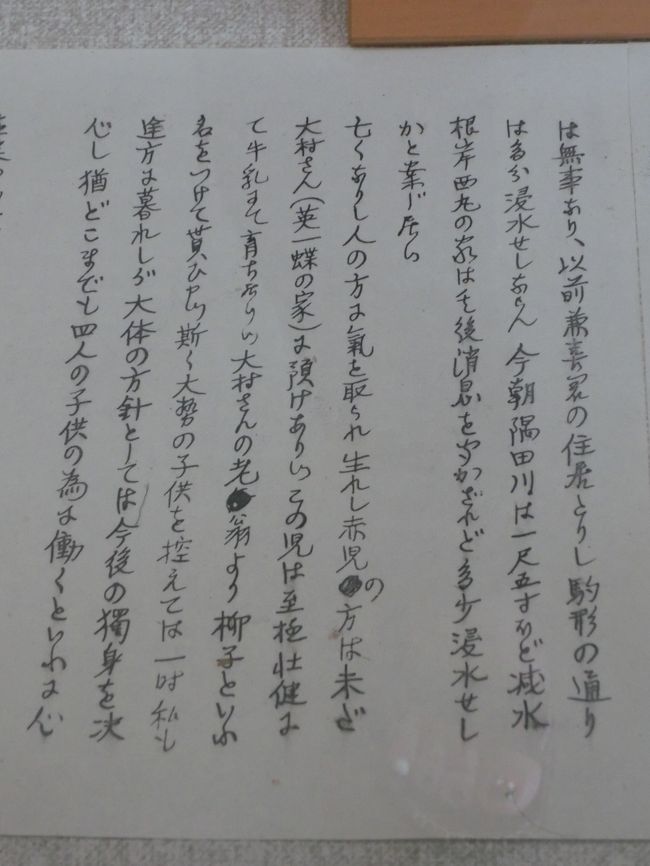 は無事あり、以前兼喜君の住居とりし駒形の通り
は多分浸水せしあらん 今朝隅田川は一尺五寸ほど減水
根岸西丸の家は其後消息をきかざれど多少浸水せし
かと案じ居ら
亡くありし人の方は氣を取られ生れし赤児の方は未だ
大村さん(英一蝶の家)は預けありいこの児は至極壮健は
て牛乳まて育ち居りい大村さんの老翁より柳子といふ
名をつけて貰ひやり斯く大勢の子供を控えては一時私も
途方は暮れしが大体の方針としては今後の獨身を決
心し猶どこまでも四人の子供の為は働くといふは心